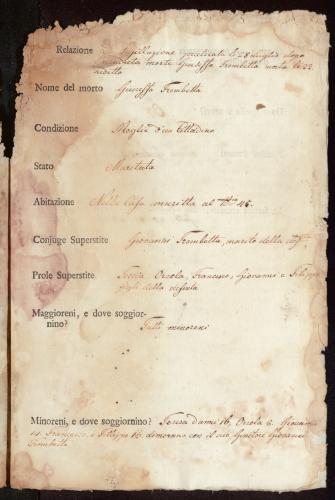 Relazione
morte Giuseffa Trombetta
Nome del morto Giuseffa Trombetta
Condizione Moglie d'un Cittadino
Stato Maritata
Abitazione Nella Casa coscritta al N.ro 45.
Conjuge Superstite Giovanni Trombetta, marito della
Prole Superstite Teresa Orsola, Francesco, Giovanni e
figli della defonta
Maggioreni, e dove soggior-
nino? Tutti minoreni
Minoreni, e dove soggiornino? Teresa d'anni 16, Orsola
Francesco, e Filippo 16. dimorano con il suo Genitore Giovanni
Trombetta